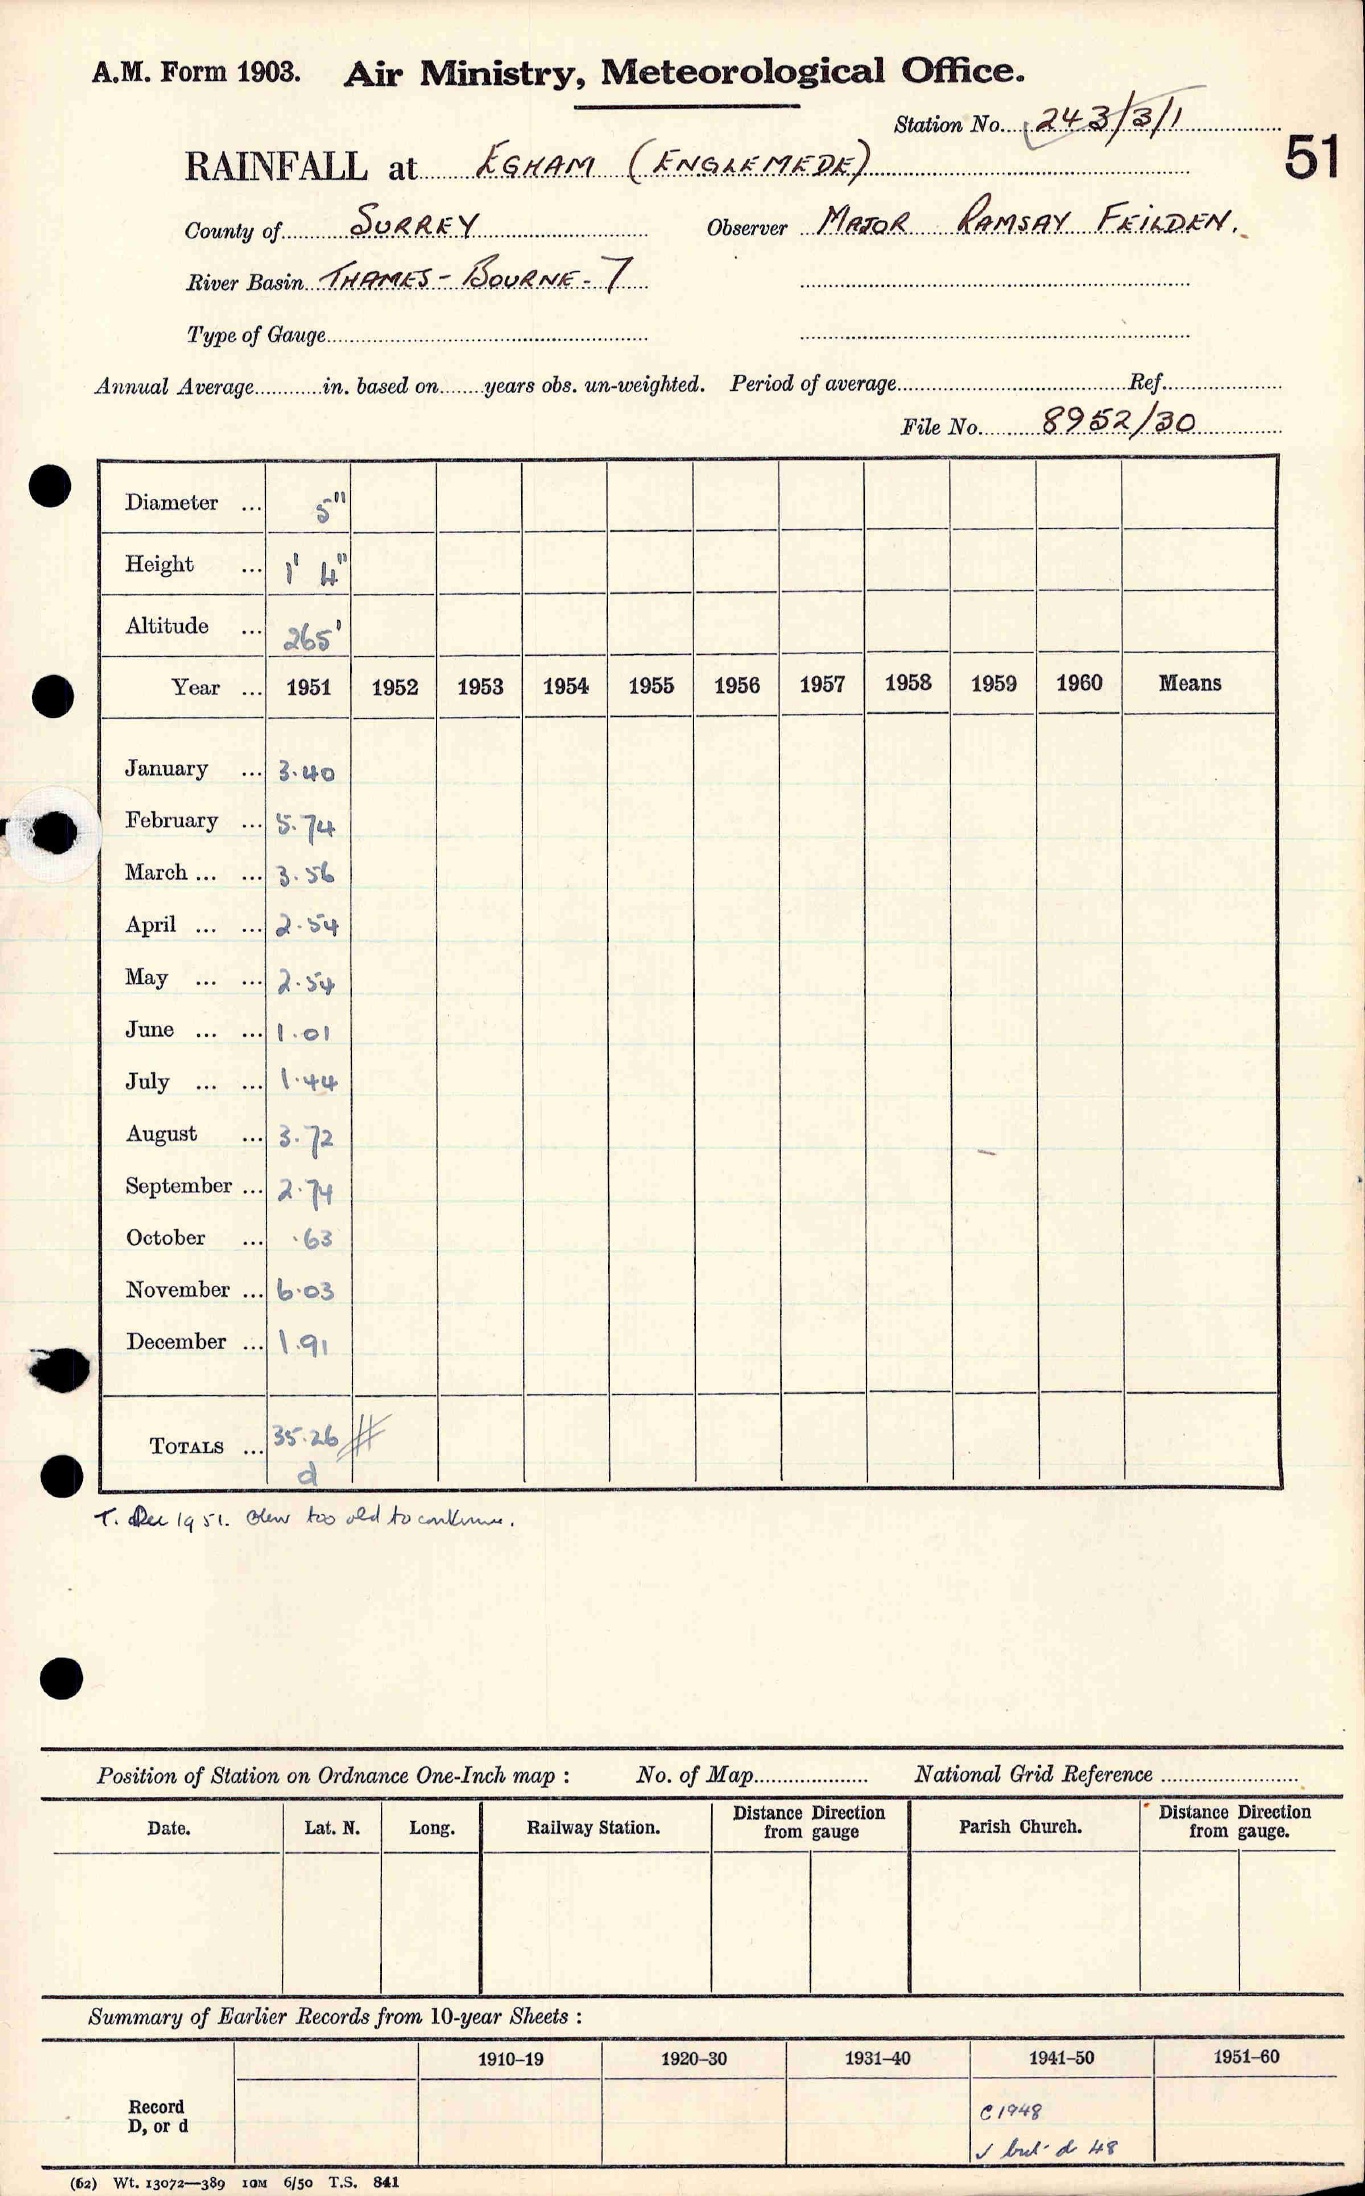 A.M. Form 1903. Air Ministry, Meteorological Office.
Station No. 243/3/1
51
RAINFALL at EGHAM (ENGLEMEDE)
County of SURREY Observer MAJOR RAMSAY FEILDEN.
River Basin THAMES - BOURNE - 7
Type of Gauge
Annual Average in. based on years obs. un-weighted. Period of average Ref.
File No. 8952/30
Diameter ... 5"
Height ... 1' 4"
Altitude ... 265'
Year ... 1951 1952 1953 1954 1955 1956 1957 1958 1959 1960 Means
January ... 3.40
February ... 5.74
March ... ... 3.56
April ... ... 2.54
May ... ... 2.54
June ... ... 1.01
July ... ... 1.44
August ... 3.72
September ... 2.74
October ... .63
November ... 6.03
December ... 1.91
TOTALS ... 35.26 #
d
T. Dec 1951. too old to continue.
Position of Station on Ordnance One-Inch map : No. of Map National Grid Reference
Date. Lat. N. Long. Railway Station. Distance Direction from gauge Parish Church. Distance Direction from gauge.
Summary of Earlier Records from 10-year Sheets :
1910–19 1920–30 1931–40 1941–50 1951–60
Record D, or d
C 1948
✓ but d 48
(62) Wt. 13072—389 10M 6/50 T.S. 841